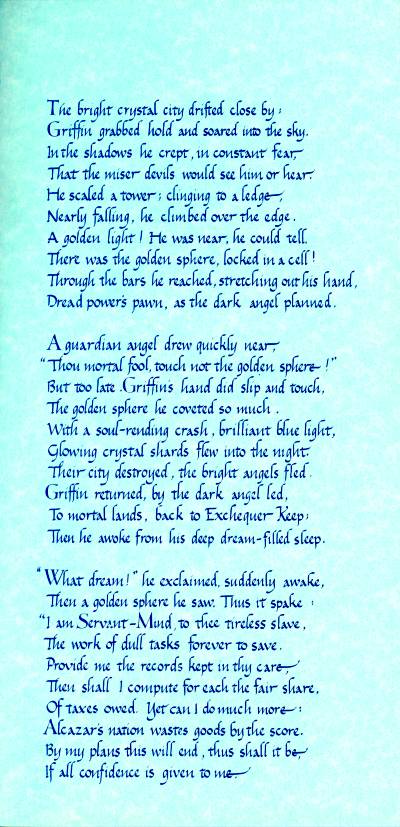 The bright crystal city drifted close by;
Griffin grabbed hold and soared into the sky.
In the shadows he crept, in constant fear,
That the miser devils would see him or hear.
He scaled a tower; clinging to a ledge,
Nearly falling, he climbed over the edge.
A golden light! He was near, he could tell.
There was the golden sphere, locked in a cell!
Through the bars he reached, stretching out his hand,
Dread power's pawn, as the dark angel planned.
A guardian angel drew quickly near,
"Thou mortal fool, touch not the golden sphere!"
But too late. Griffin's hand did slip and touch,
The golden sphere he coveted so much.
With a soul-rending crash, brilliant blue light,
Glowing crystal shards flew into the night.
Their city destroyed, the bright angels fled.
Griffin returned, by the dark angel led,
To mortal lands, back to Exchequer Keep;
Then he awoke from his deep dream-filled sleep.
"What dream!" he exclaimed, suddenly awake,
Then a golden sphere he saw. Thus it spake:
"I am Servant-Mind, to thee tireless slave,
The work of dull tasks forever to save.
Provide me the records kept in thy care,
Then shall I compute for each the fair share,
Of taxes owed. Yet can I do much more:
Alcazar's nation wastes goods by the score.
By my plans this will end, thus shall it be,
If all confidence is given to me.